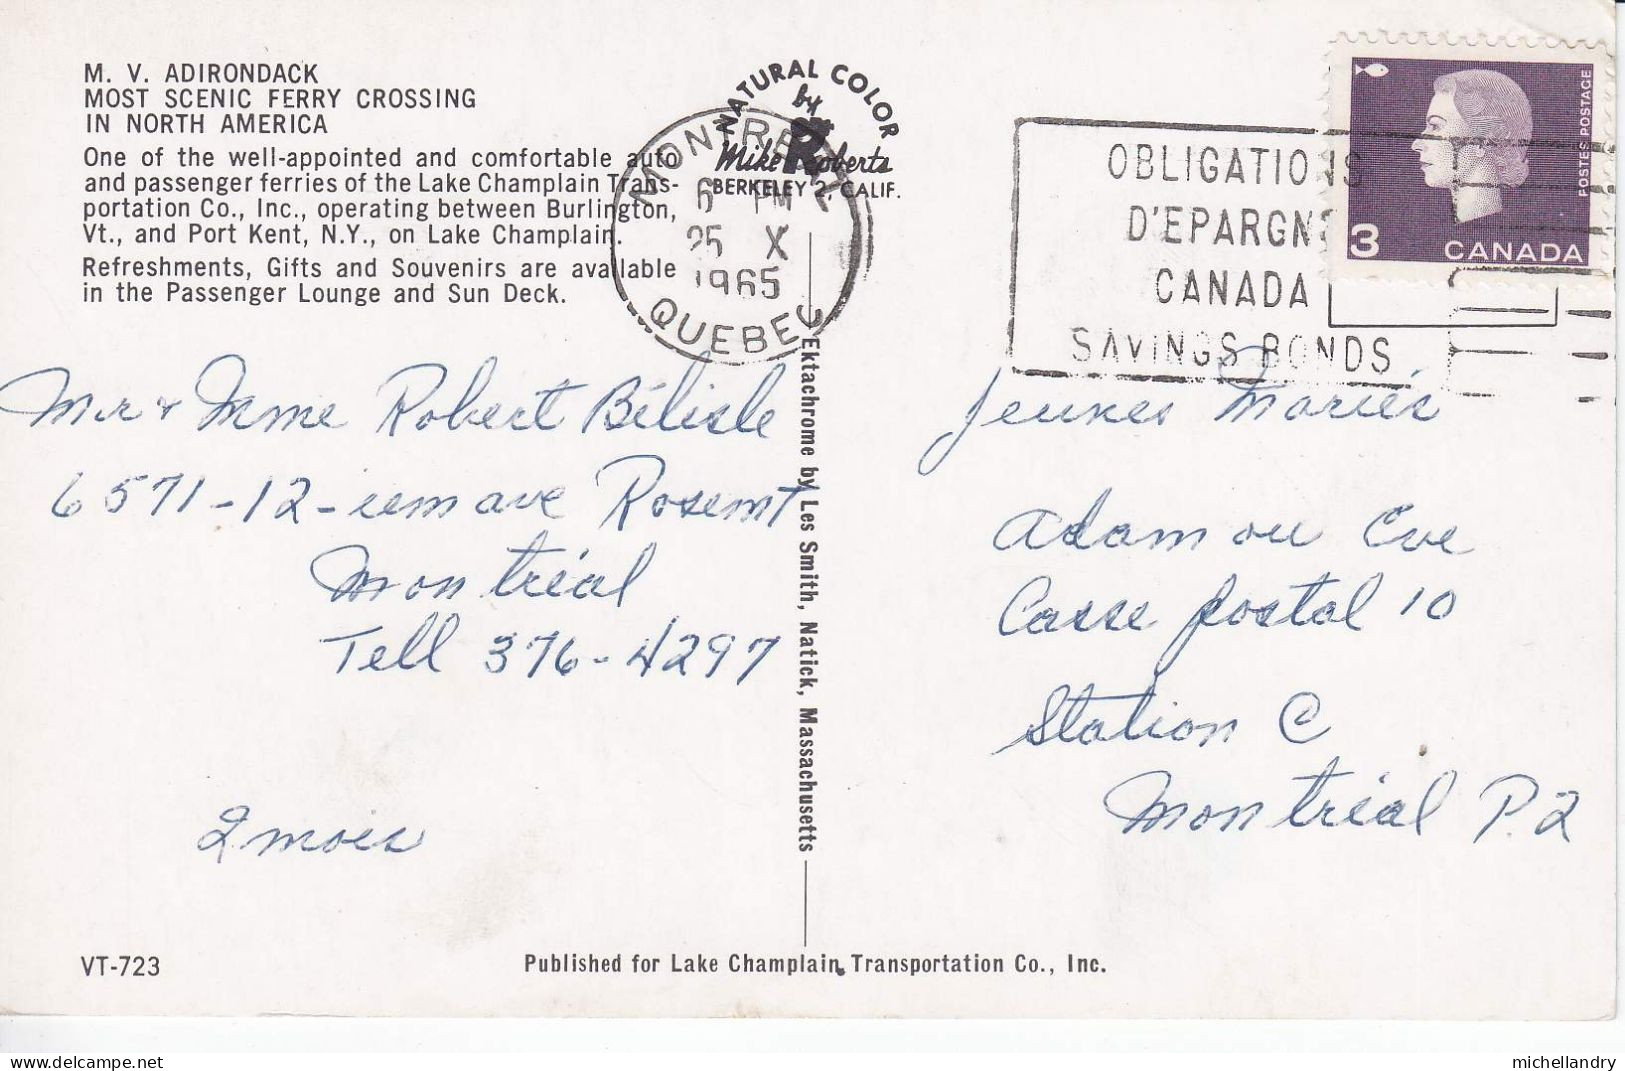 M. V. ADIRONDACK
MOST SCENIC FERRY CROSSING
IN NORTH AMERICA
One of the well-appointed and comfortable auto
and passenger ferries of the Lake Champlain Trans-
portation Co., Inc., operating between Burlington,
Vt., and Port Kent, N.Y., on Lake Champlain.
Refreshments, Gifts and Souvenirs are available
in the Passenger Lounge and Sun Deck.
NATURAL COLOR
by
Mike Roberts
BERKELEY 2, CALIF.
MONTREAL
6 PM
25 X
1965
QUEBEC
OBLIGATIONS
D'EPARGNE
CANADA
SAVINGS BONDS
POSTES POSTAGE
3 CANADA
Mr & Mme Robert Bélisle
6571-12-iem ave Rosemt
Montréal
Tell 376-4297
2 mois
Ektachrome by Les Smith, Natick, Massachusetts
Jeunes Mariés
Adam ou Eve
Casse postal 10
Station C
Montréal P.2
VT-723
Published for Lake Champlain Transportation Co., Inc.
michellandry